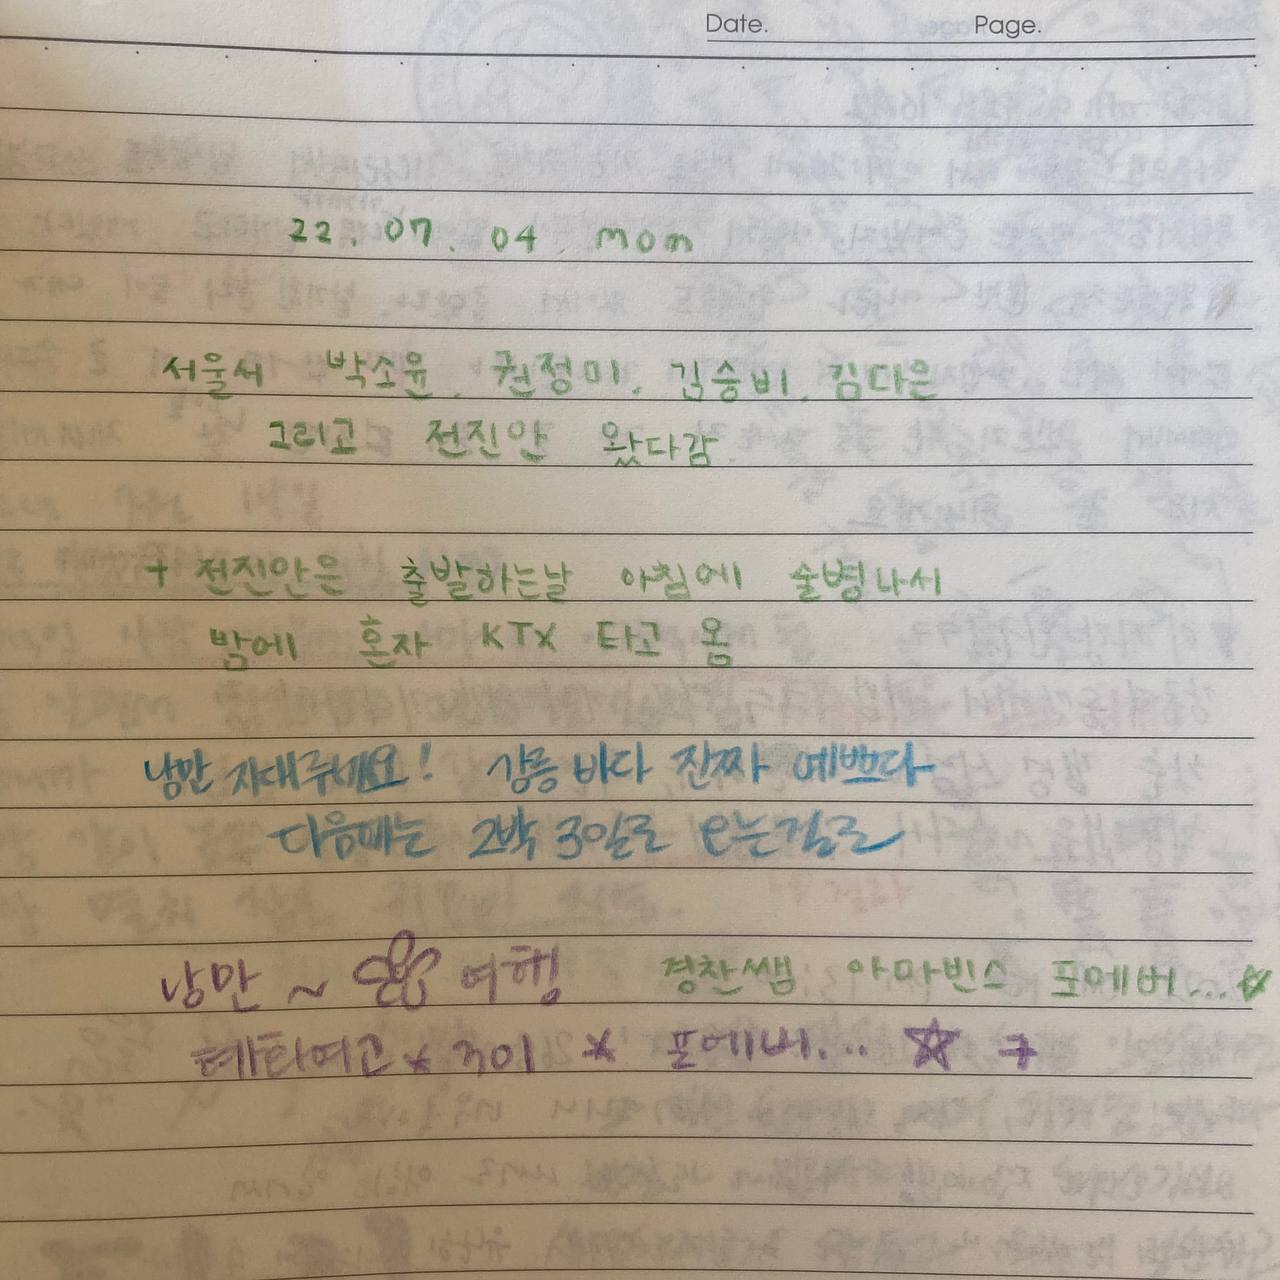 Date. Page.
22. 07. 04. mon
서울서 박소윤, 권정미, 김승비, 김다은
그리고 전진안 왔다감
+ 전진안은 출발하는날 아침에 술병나서
밤에 혼자 KTX 타고 옴
낭만 자대루세요! 강릉 바다 진짜 예쁘다
다음에는 2박 3일로 오는걸로
낭만 ~ 여행 경찬쌤 아마빈스 포에버...☆
포에버... ☆ +